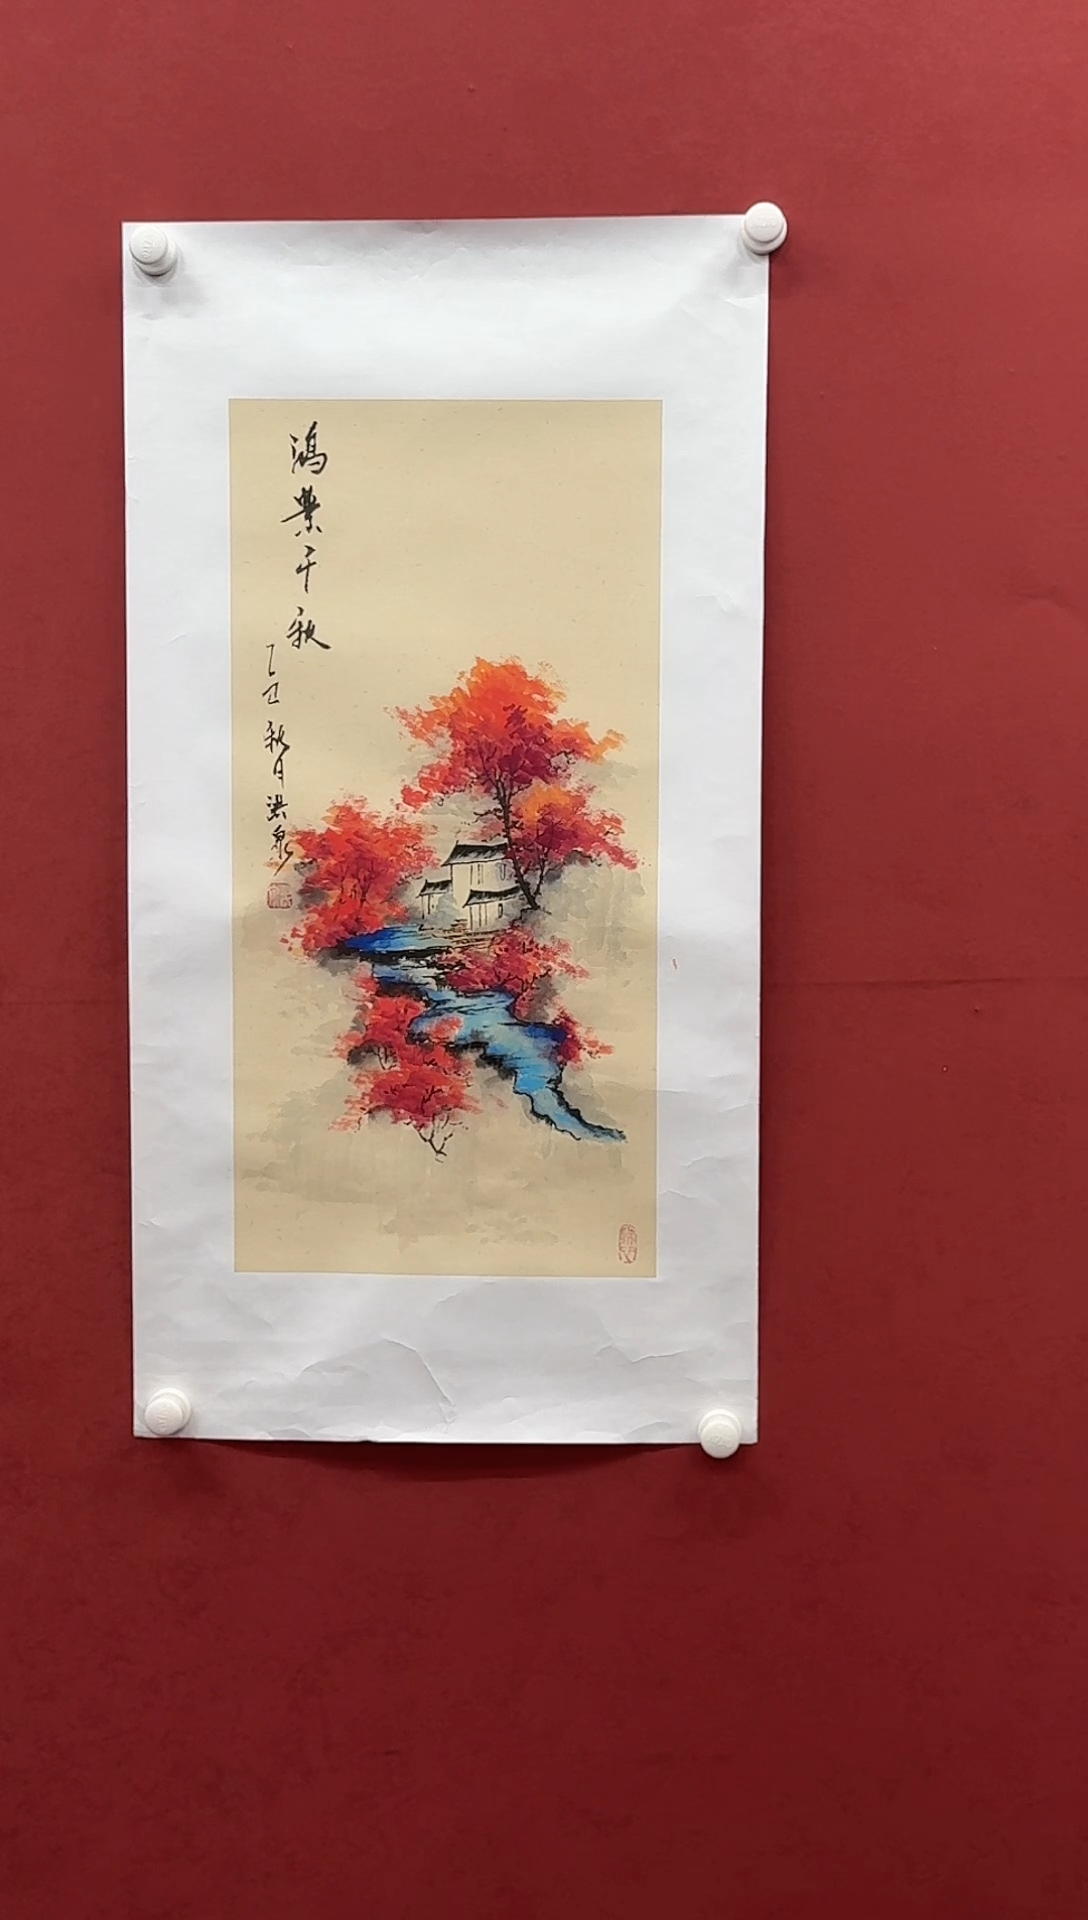 鴻業千秋
乙巳秋月洪泉